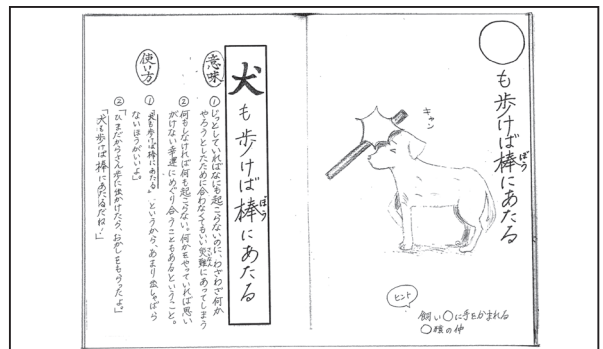 ◯も歩けば棒にあたる
ぼう
キャン
ヒント
飼い◯に手をかまれる
◯猿の仲
犬も歩けば棒にあたる
ぼう
意味
①じっとしていればなにも起こらないのに、わざわざ何か
やろうとしたために合わなくてもいい災難にあってしまう
さいなん
②何もしなければ何も起こらない。何かをやっていれば思い
がけない幸運にめぐり合うこともあるということ。
使い方
①「犬も歩けば棒にあたる」というから、あまり出しゃばら
ないほうがいいよ。
②「ひまだからさん歩に出かけたら、おかしをもらったよ。」
「犬も歩けば棒にあたるだね！」